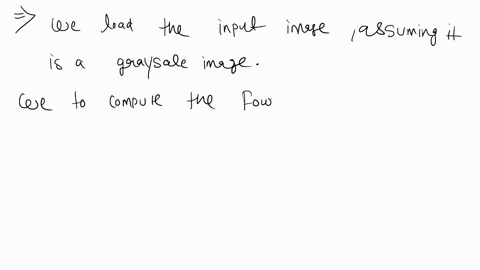 ⇒ we load the input image, assuming it
is a graysale image.
we to compute the Fow